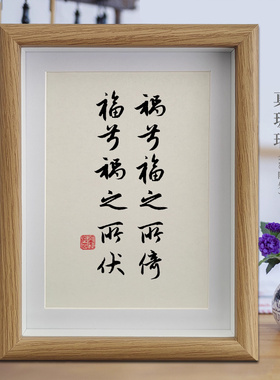 祸兮福之所倚
福兮祸之所伏